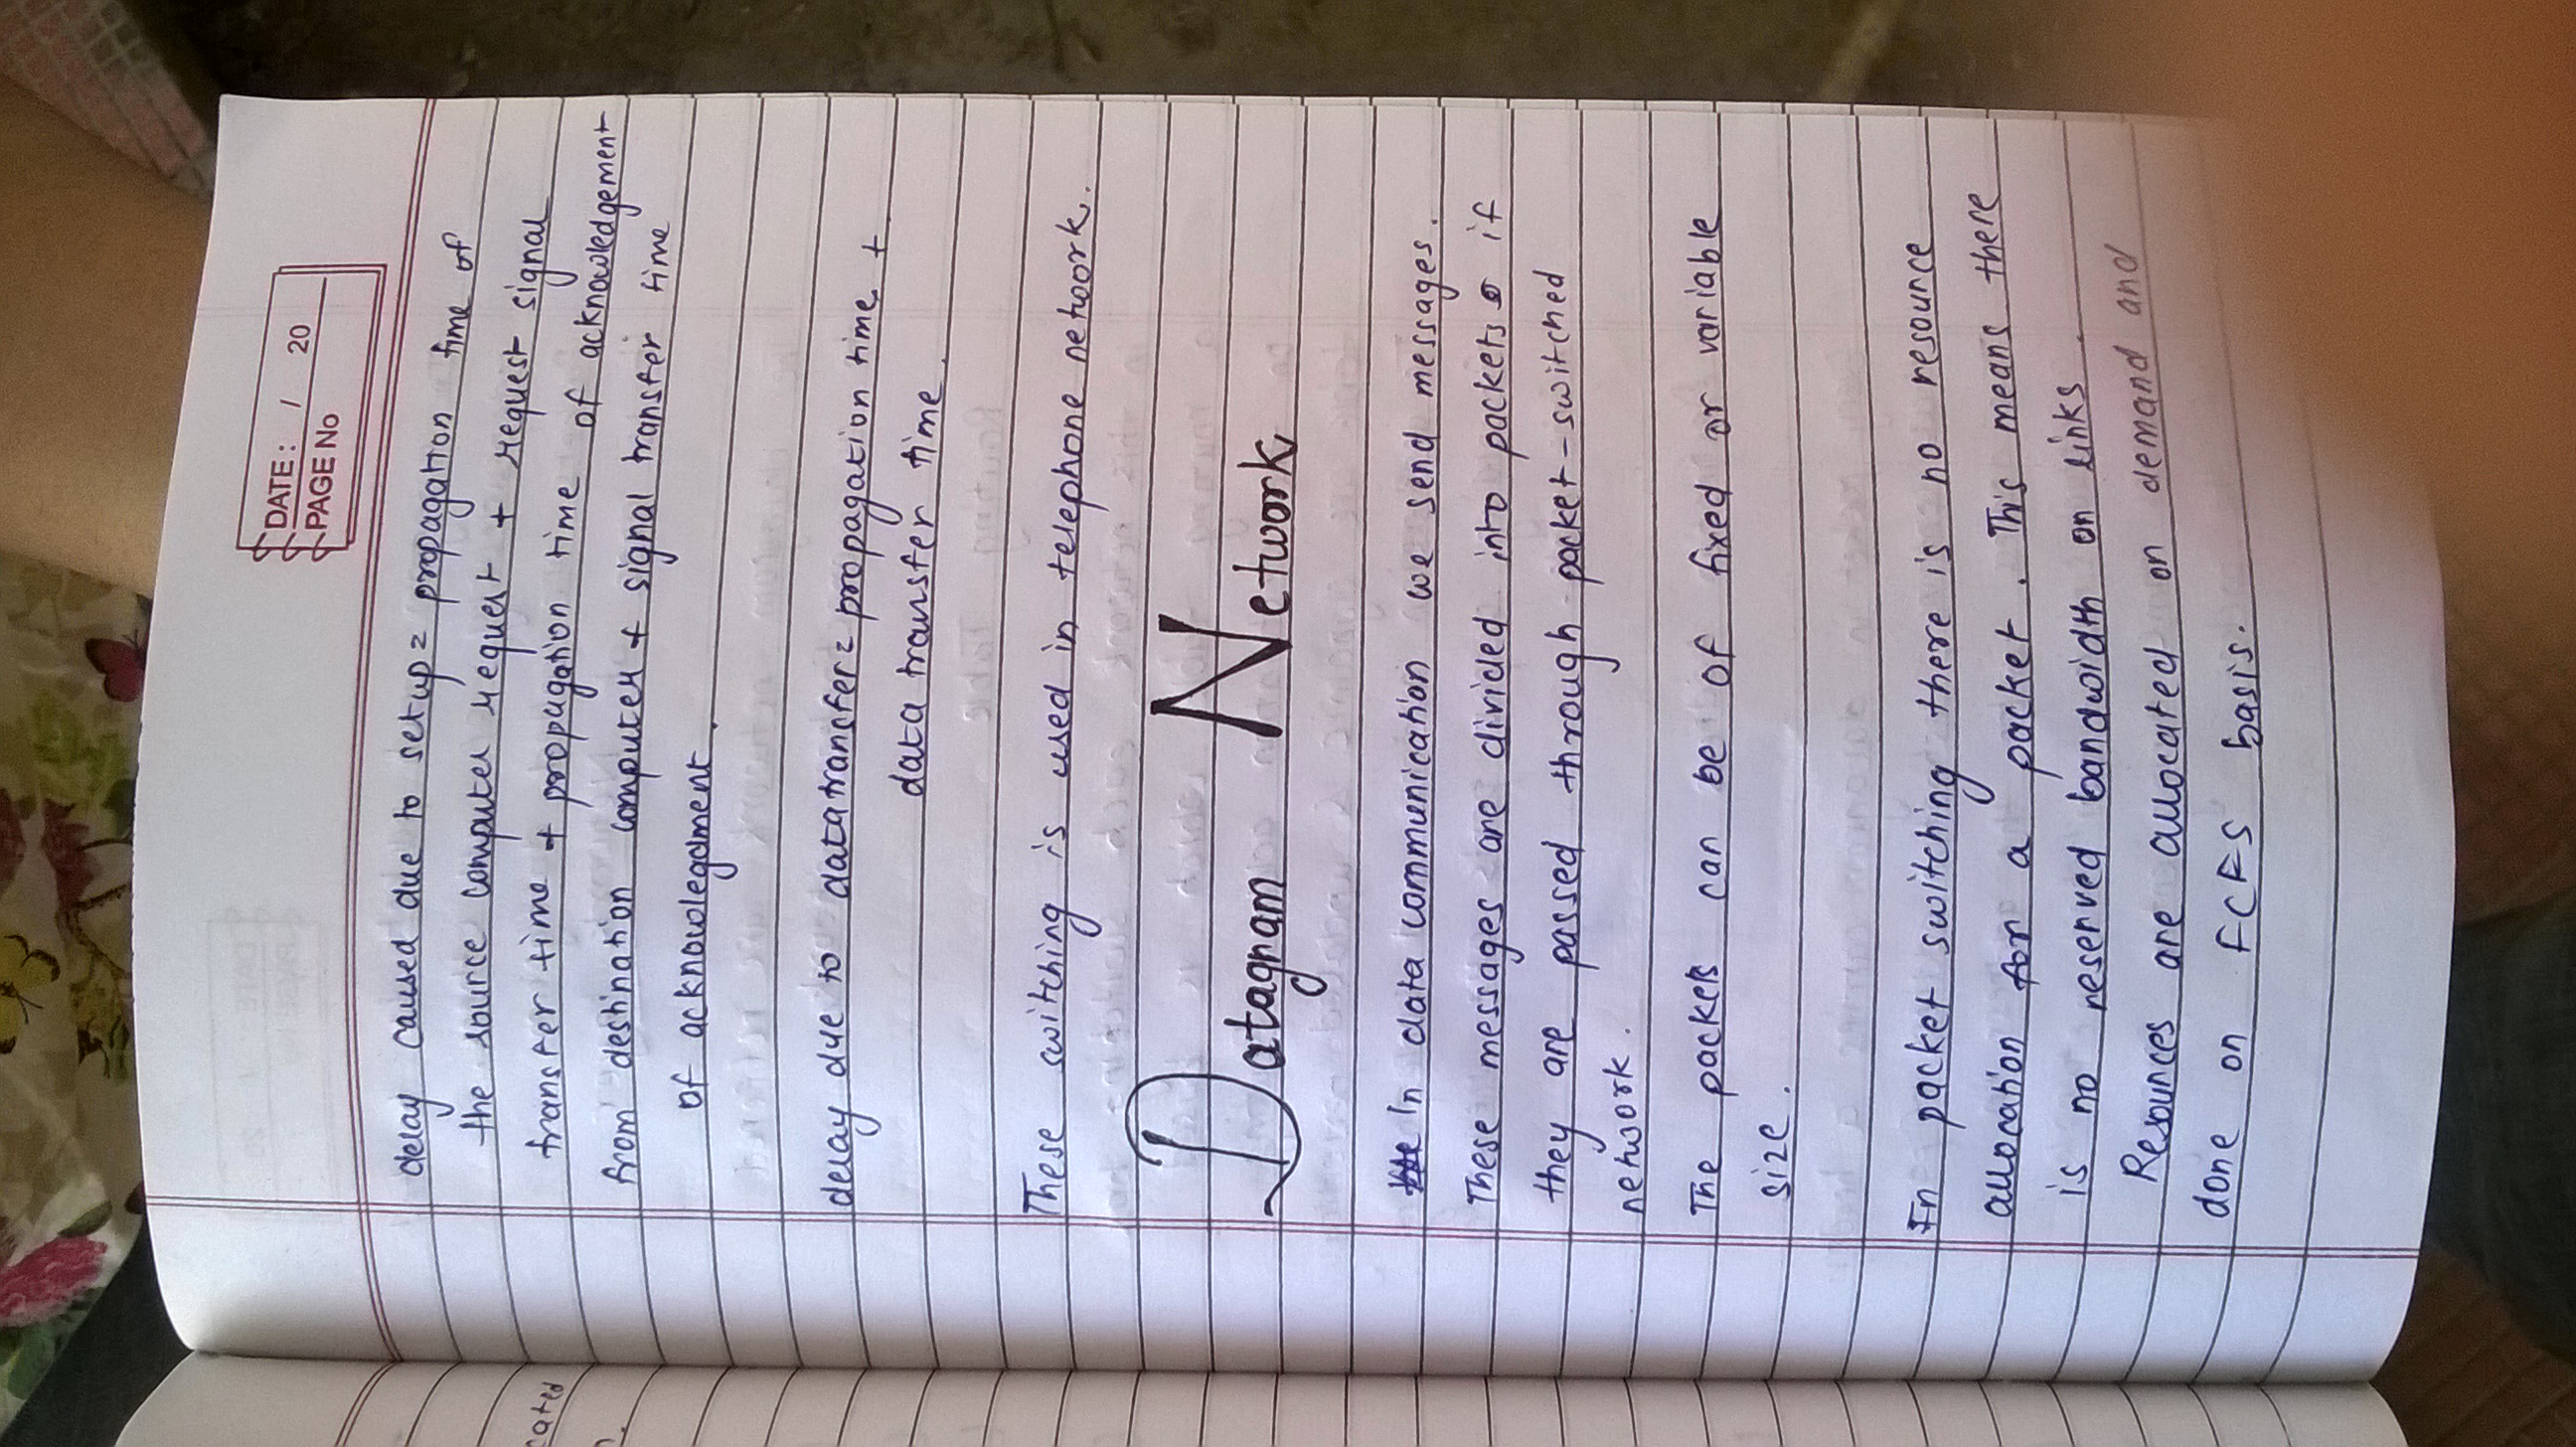 DATE: / 20
PAGE No
cated
delay caused due to setup = propagation time of
the source computer request + request signal
transfer time + propagation time of acknowledgement
from destination computer + signal transfer time
of acknowlegdment.
delay due to datatransfer = propagation time +
data transfer time.
These switching is used in telephone network.
Datagram Network
In data communication we send messages.
These messages are divided into packets if
they are passed through packet-switched
network.
The packets can be of fixed or variable
size.
In packet switching there is no resource
allocation for a packet. This means there
is no reserved bandwidth on links.
Resources are allocated on demand and
done on FCFS basis.